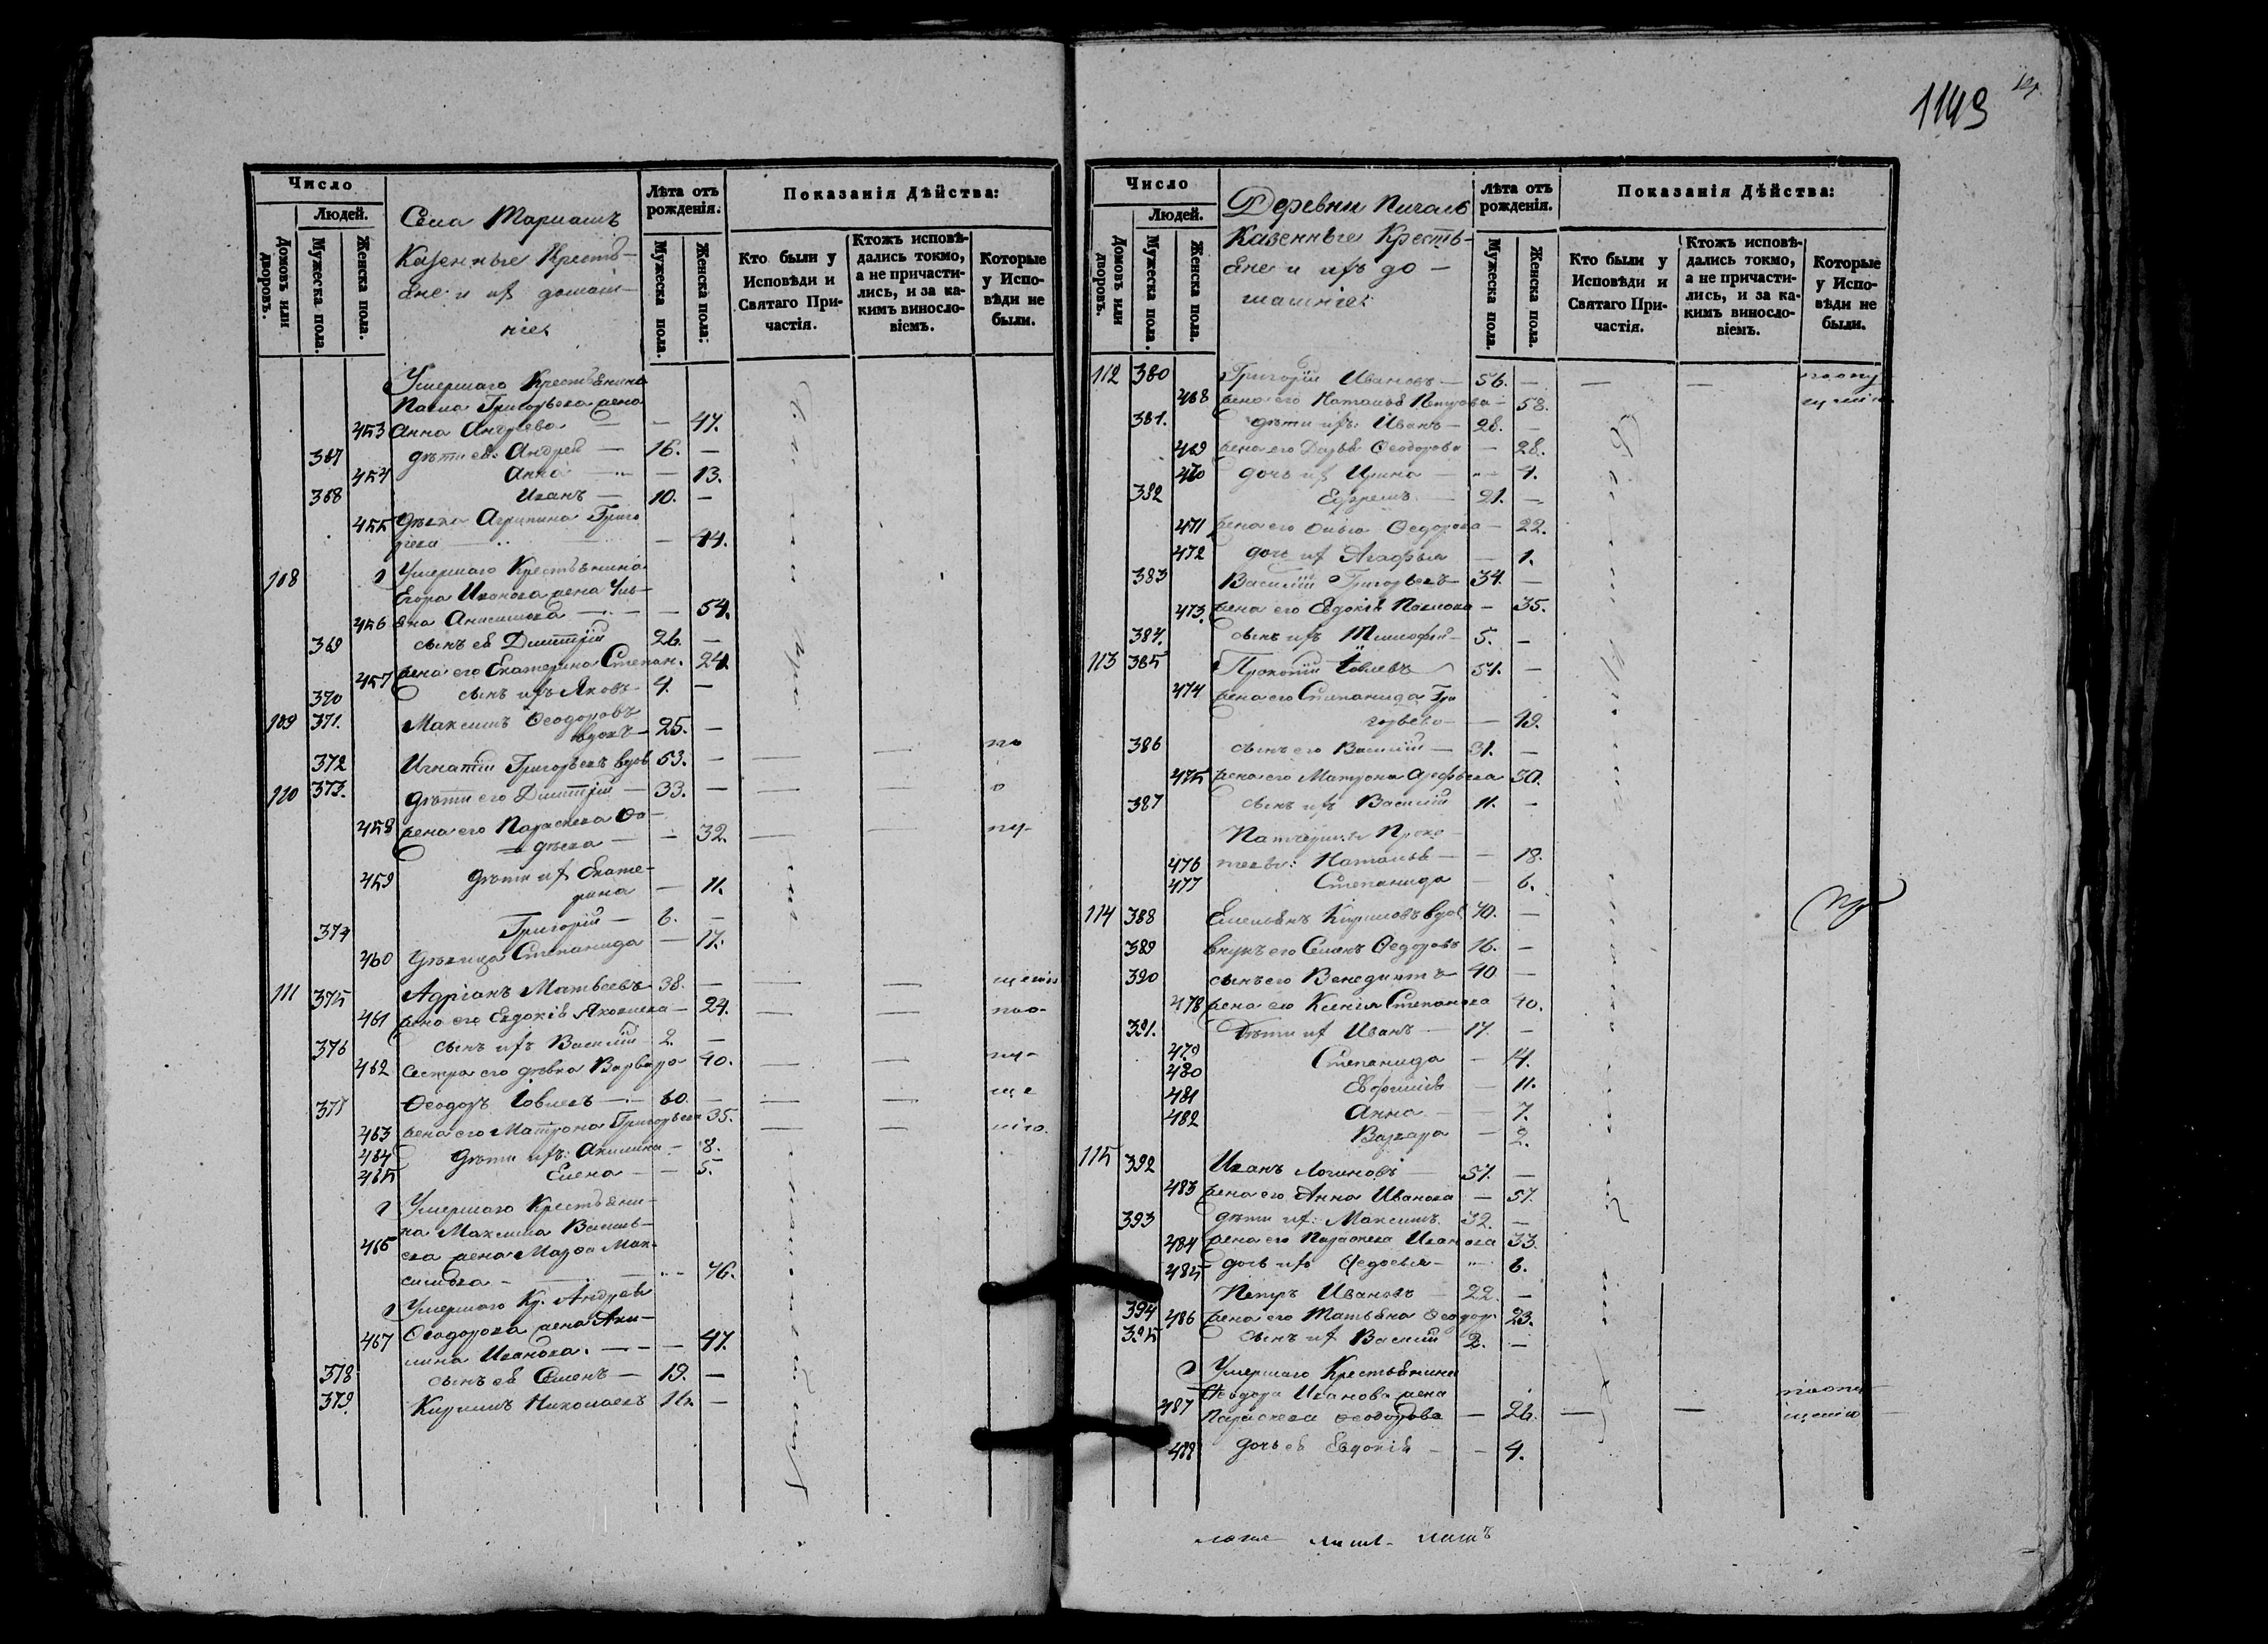 1149
Число
Людей.
Домовъ или дворовъ.
Мужеска пола.
Женска пола.
Села Мариашъ
Казенные Крестья-
яне и ихъ домаш-
ніе
Лѣта отъ рожденія.
Мужеска пола.
Женска пола.
Показанія Дѣйства:
Кто были у Исповѣди и Святаго При-частія.
Ктожъ исповѣ-дались токмо, а не причасти-лись, и за ка-кимъ винносло-віемъ.
Которые у Испо-вѣди не были.
Умершаго Крестьянина
Павла Григорьева жена
453 Анна Андреева — — 47.
367 дѣти ея: Андрей — 16. —
454 Анна — — 13.
368 Иванъ — 10. —
455 Дѣвка Агрипина Григо
рьева — — 44.
108 Умершаго Крестьянина
Егора Иванова жена Уль-
456 яна Анисимова — — 54.
369 сынъ ея Дмитрій 26. —
457 жена его Екатерина Степан. 24.
370 сынъ ихъ Яковъ 4. —
109 371. Максимъ Ѳеодоровъ
вдовъ — 25. —
372 Игнатій Григорьевъ вдов 53. — — — по
110 373. дѣти его Дмитрій — 33. — — — о
458 жена его Параскева Ѳа-
дѣева — — 32. — — пу-
459 дѣти их Екате-
рина — 11.
374 Григорій — 6. —
460 Дѣвица Степанида — 17.
111 375 Адріанъ Матвеевъ 38. — — — щенію
461 жена его Евдокія Яковлева — 24. — — по о-
376 сынъ ихъ Василій 2. —
462 Сестра его дѣвка Варвара 40. — — пу-
377 Ѳеодоръ Іовлевъ — 60. — — — ще
463 жена его Матрона Григорьева 35. — — нію.
464 дѣти ихъ: Акилина — 8.
465 Елена — — 5.
Умершаго Крестьяни-
на Максима Василь-
466 ева жена Марѳа Мак-
симова — — 76.
Умершаго Кр. Андрея
Ѳеодорова жена Аки-
467 лина Иванова. — — 47.
378 сынъ ея Семенъ — 19. —
379. Кирилъ Николаевъ 16. —
Число
Людей.
Домовъ или дворовъ.
Мужеска пола.
Женска пола.
Деревни Пичаль
Казенные Кресть-
яне и ихъ до-
машніе:
Лѣта отъ рожденія.
Мужеска пола.
Женска пола.
Показанія Дѣйства:
Кто были у Исповѣди и Святаго При-частія.
Ктожъ исповѣ-дались токмо, а не причасти-лись, и за ка-кимъ винносло-віемъ.
Которые у Испо-вѣди не были.
112 380 Григорій Ивановъ — 56. — — — по опу
468 жена его Наталья Петрова — 58. щенію
381. дѣти ихъ: Иванъ — 28. —
469 жена его Дарья Ѳеодорова — 28.
470 дочь их Ирина — 4.
382 Ефремъ — 21. —
471 жена его Ольга Ѳедорова — 22.
472 дочь их Агафья — 1.
383 Василій Григорьевъ — 34. —
473. жена его Евдокія Павлова — 35.
384. сынъ ихъ Тимофей — 5. —
113 385 Прокопій Іовлевъ 51. —
474 жена его Степанида Гри
горьева — — 49.
386 сынъ его Василій — 31. —
475 жена его Матрона Арефьева 30.
387 сынъ ихъ Василій 11. —
Патчерицы Проко-
476 піевы: Наталья — — 18.
477 Степанида — 6.
114 388 Емельянъ Кириловъ вдов 70. —
389 внукъ его Семенъ Ѳедоровъ 16. —
390 сынъ его Венедиктъ 40 —
478 жена его Ксенія Степанова 40.
391. Дѣти их Иванъ — 17. —
479
480 Степанида — 14.
481 Евфимія — 11.
482 Анна — — 7.
Варвара — 2.
115 392 Иванъ Логиновъ — 57. —
483 жена его Анна Иванова — 57.
393 дѣти их: Максимъ 32. —
484 жена его Параскева Иванова 33.
485 дочь ихъ Ѳедосья — 6.
394 Петръ Ивановъ — 22. —
486 жена его Татьяна Ѳеодор 23.
395 сынъ их Василій 2. —
Умершаго Крестьянина
Ѳеодора Иванова жена
487 Параскева Ѳеодорова — 26. — — по опу-
щенію
488 дочь ея Евдокія — — 4.